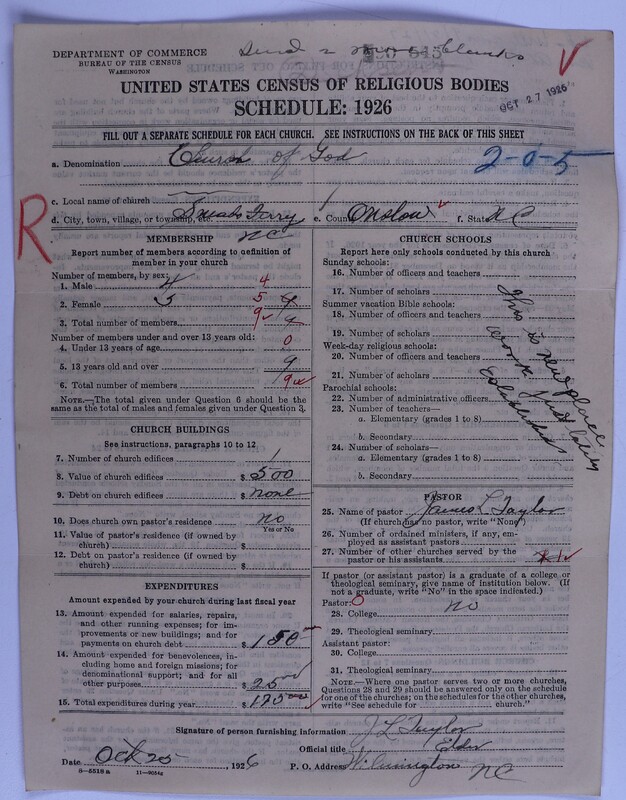 DEPARTMENT OF COMMERCE
BUREAU OF THE CENSUS
WASHINGTON
Send 2 more blanks
UNITED STATES CENSUS OF RELIGIOUS BODIES
SCHEDULE: 1926
OCT 27 1926
FILL OUT A SEPARATE SCHEDULE FOR EACH CHURCH. SEE INSTRUCTIONS ON THE BACK OF THIS SHEET
a. Denomination Church of God
2-0-5
c. Local name of church
d. City, town, village, or township, etc. Sneads Ferry NC e. County Onslow f. State NC
R
MEMBERSHIP
Report number of members according to definition of
member in your church
Number of members, by sex:
1. Male 4 4
2. Female 5 5
3. Total number of members 9
Number of members under and over 13 years old:
4. Under 13 years of age 0
5. 13 years old and over 9
6. Total number of members 9
NOTE.—The total given under Question 6 should be
the same as the total of males and females given under Question 3.
CHURCH BUILDINGS
See instructions, paragraphs 10 to 12
7. Number of church edifices 1
8. Value of church edifices $ 500
9. Debt on church edifices $ none
10. Does church own pastor's residence no
Yes or No
11. Value of pastor's residence (if owned by
church) $
12. Debt on pastor's residence (if owned by
church) $
EXPENDITURES
Amount expended by your church during last fiscal year
13. Amount expended for salaries, repairs,
and other running expenses; for im-
provements or new buildings; and for
payments on church debt $ 150
14. Amount expended for benevolences, in-
cluding home and foreign missions; for
denominational support; and for all
other purposes $ 25
15. Total expenditures during year $ 175
CHURCH SCHOOLS
Report here only schools conducted by this church
Sunday schools:
16. Number of officers and teachers
17. Number of scholars
Summer vacation Bible schools:
18. Number of officers and teachers
19. Number of scholars
Week-day religious schools:
20. Number of officers and teachers
21. Number of scholars
Parochial schools:
22. Number of administrative officers
23. Number of teachers—
a. Elementary (grades 1 to 8)
b. Secondary
24. Number of scholars—
a. Elementary (grades 1 to 8)
b. Secondary
This is new place
work just lately
Established
PASTOR
25. Name of pastor James L Taylor
(If church has no pastor, write "None")
26. Number of ordained ministers, if any, em-
ployed as assistant pastors
27. Number of other churches served by the
pastor or his assistants
If pastor (or assistant pastor) is a graduate of a college or
theological seminary, give name of institution below. (If
not a graduate, write "No" in the space indicated.)
Pastor: 0
28. College no
29. Theological seminary
Assistant pastor:
30. College
31. Theological seminary
NOTE.—Where one pastor serves two or more churches,
Questions 28 and 29 should be answered only on the schedule
for one of the churches; on the schedules for the other churches,
write "See schedule for church."
Signature of person furnishing information J L Taylor
Official title Elder
Date Oct 25, 1926 P. O. Address Wilmington NC
8-5518 a 11-9054g